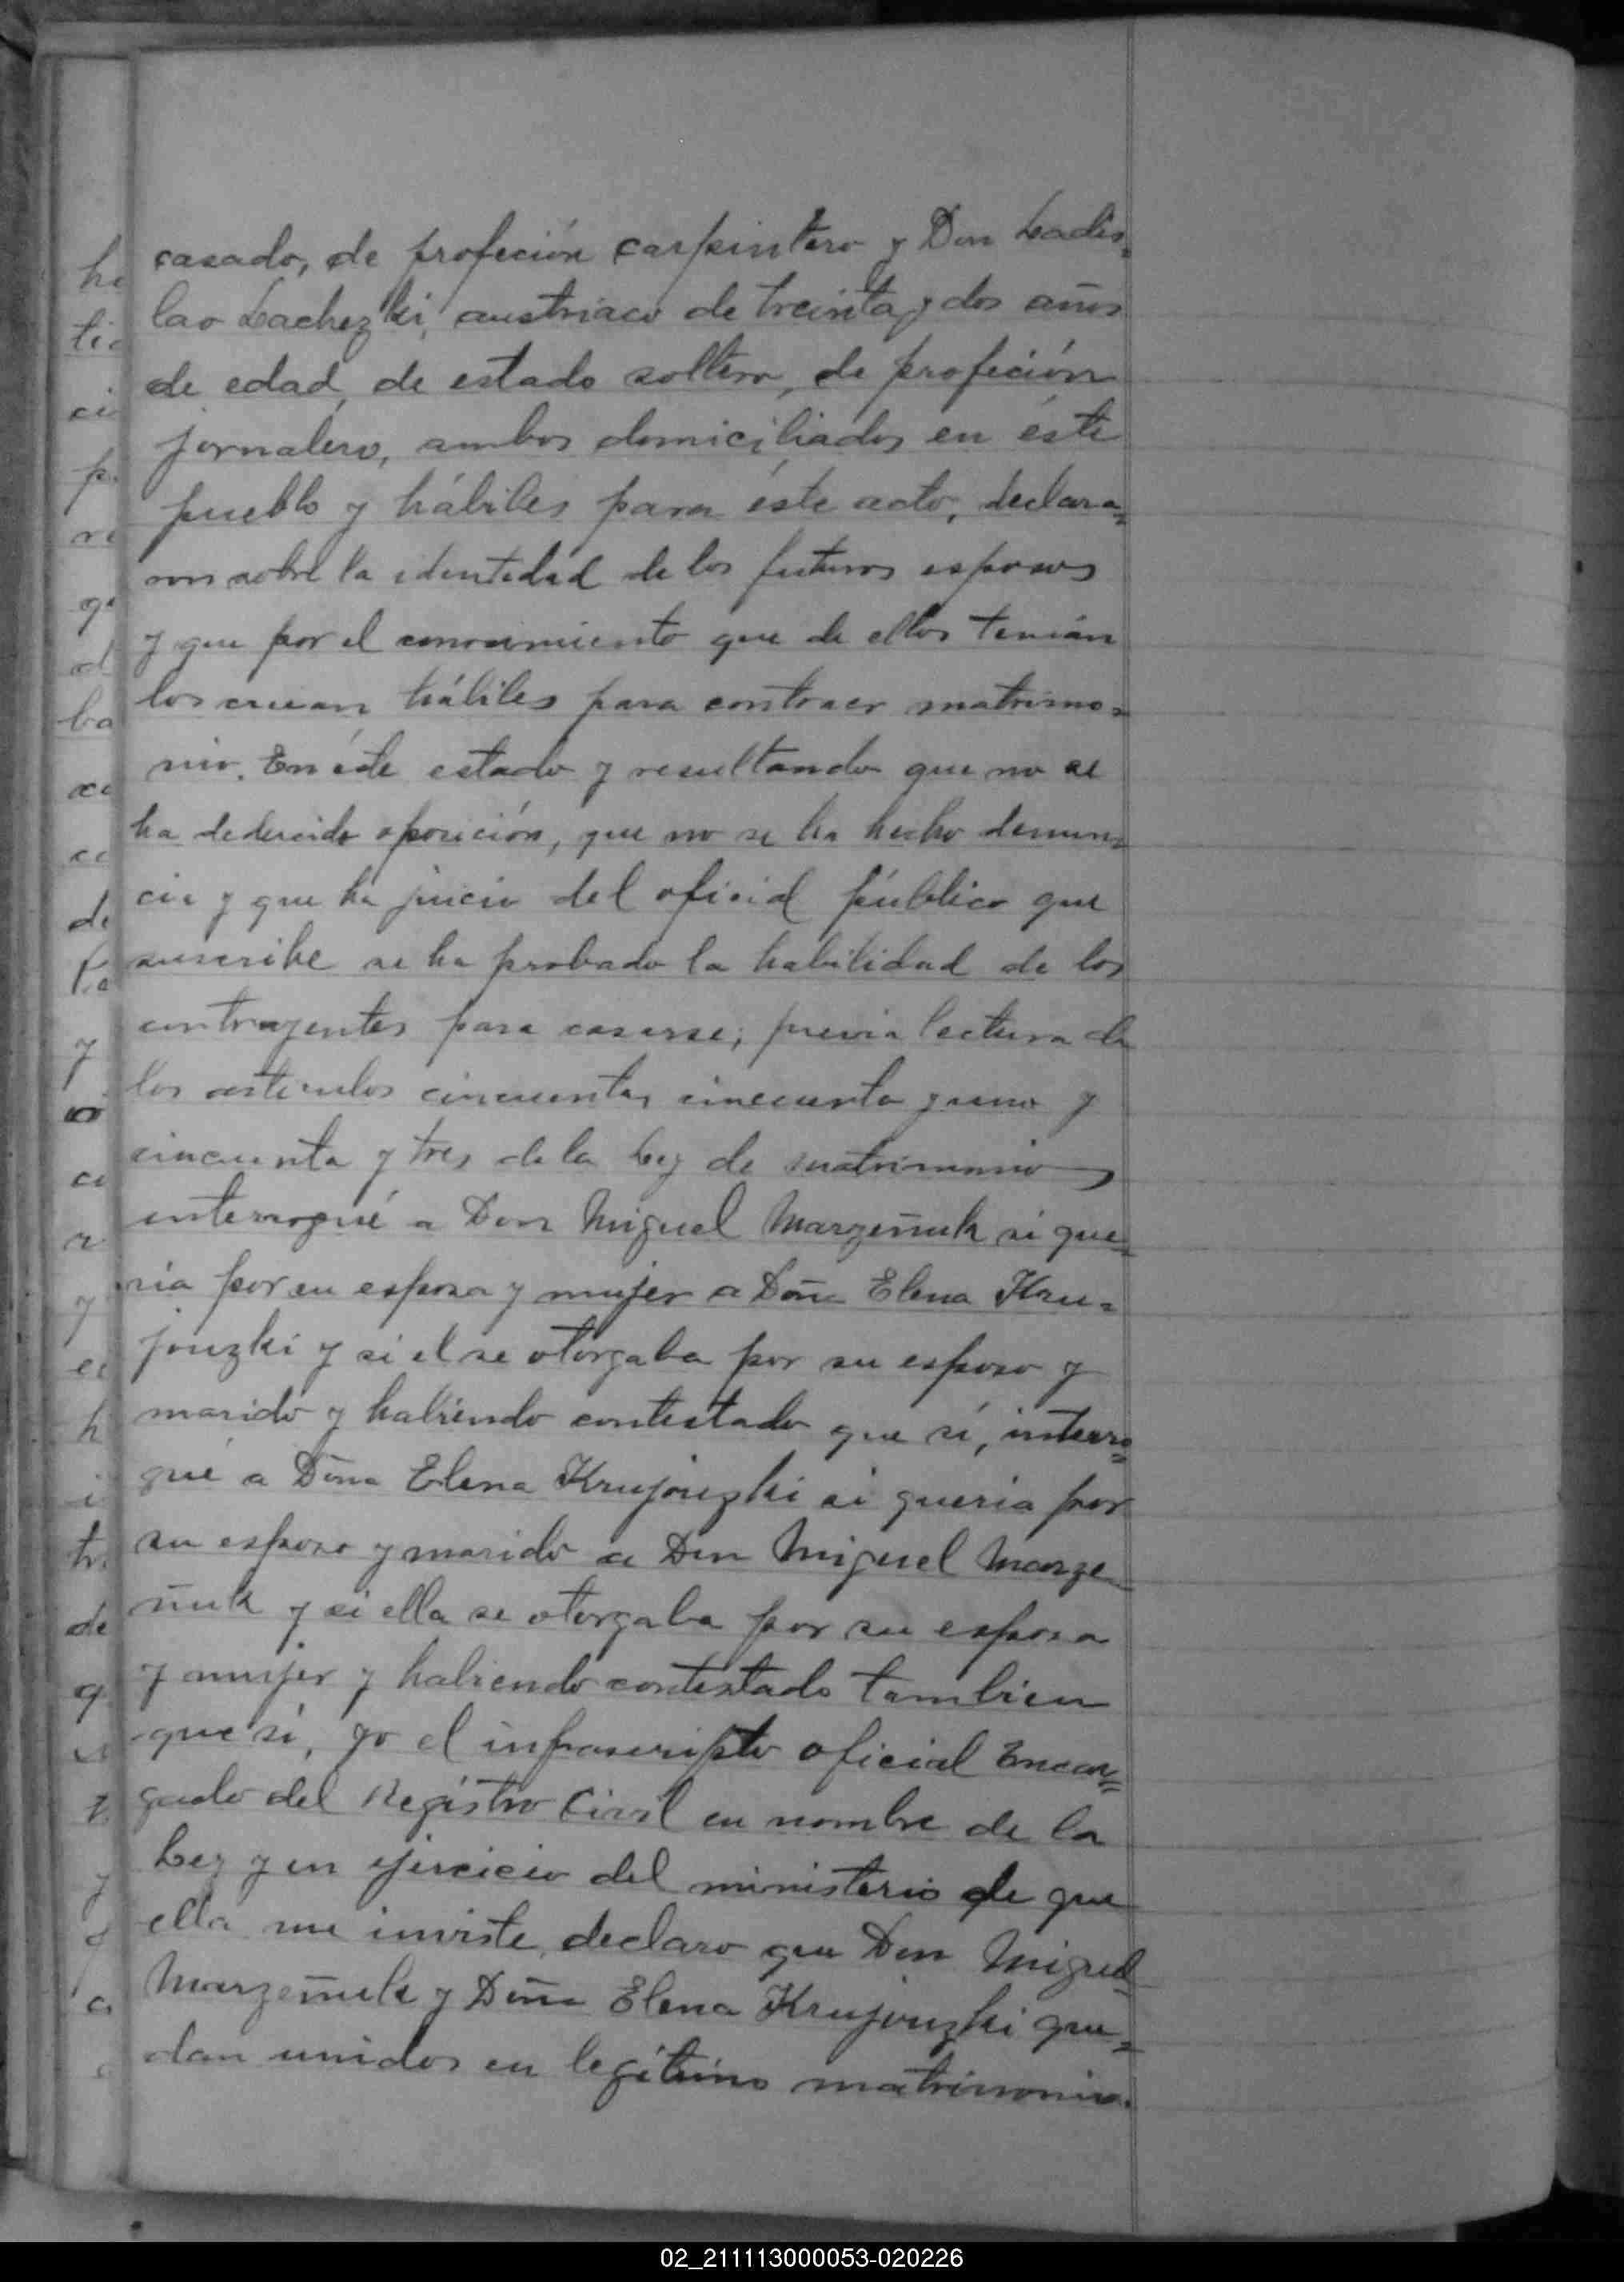 casado, de profeción carpintero y Don Ladis=
lao Lachezki, austriaco de treinta y dos años
de edad, de estado soltero, de profeción
jornalero, ambos domiciliados en éste
pueblo y hábiles para éste acto, declara=
ron sobre la identidad de los futuros esposos
y que por el conocimiento que de ellos tenián
los creian hábiles para contraer matrimo=
nio. En éste estado y resultando que no se
ha dedercido oposición, que no se ha hecho denun=
cia y que ha juicio del oficial público que
suscribe se ha probado la habilidad de los
contrayentes para casarse; previa lectura de
los artículos cincuenta, cincuenta y uno y
cincuenta y tres de la Ley de matrimonio
interrogué a Don Miguel Marzeñuk si que=
ría por su esposa y mujer a Doña Elena Kru=
jouzki y si el se otorgaba por su esposo y
marido y habiendo contestado que sí, interro=
gué a Doña Elena Krujouzki si queria por
su esposo y marido a Don Miguel Marze
ñuk y si ella se otorgaba por su esposa
y mujer y habiendo contestado tambien
que sí, yo el infrascripto oficial Encar=
gado del Registro Civil en nombre de la
Ley y en ejercicio del ministerio de que
ella me inviste, declaro que Don Miguel
Marzeñuk y Doña Elena Krujouzki que=
dan unidos en legítimo matrimonio.
02_211113000053-020226